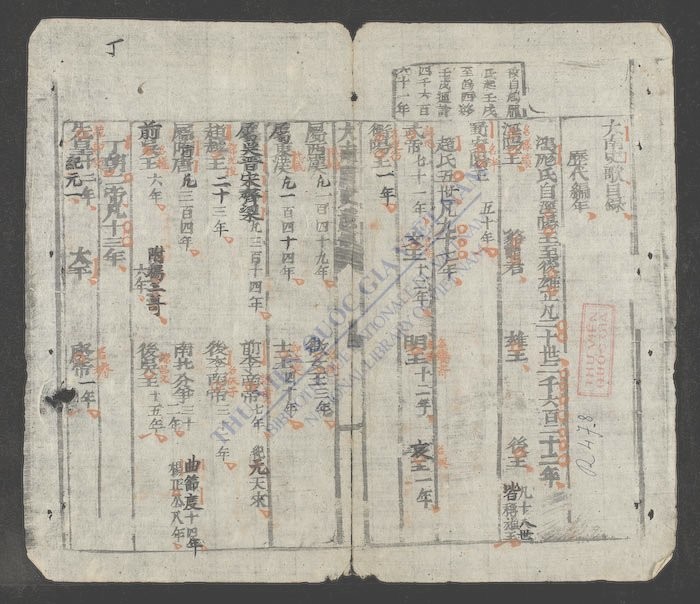 大南史歌目錄
歷代編年
鴻厖氏自涇陽王至後雄王凡二十世二千六百二十二年
涇陽王 貉龍君 雄王 後王 凡十八世皆稱雄王
蜀安陽王 五十年
趙氏五世凡九十七年
武帝七十一年 文王十二年 明王十二年 哀王一年
衛陽王一年
丁
屬西漢凡一百四十九年 徵女王三年
屬東漢凡一百四十四年 士王四十年
屬吳晉宋齊梁凡三百十四年 前李南帝七年 紀元天德
趙越王二十三年 後李南帝三十二年
屬隋唐凡三百四年 南北分爭三十二年 曲節度十四年 楊正公八年
前吳王六年 附楊三哥六年 後吳王十五年
丁朝二帝凡十三年
先皇十二年 紀元一 太平 廢帝一年
R.478
THƯ VIỆN QUỐC GIA VIỆT NAM
NATIONAL LIBRARY OF VIETNAM